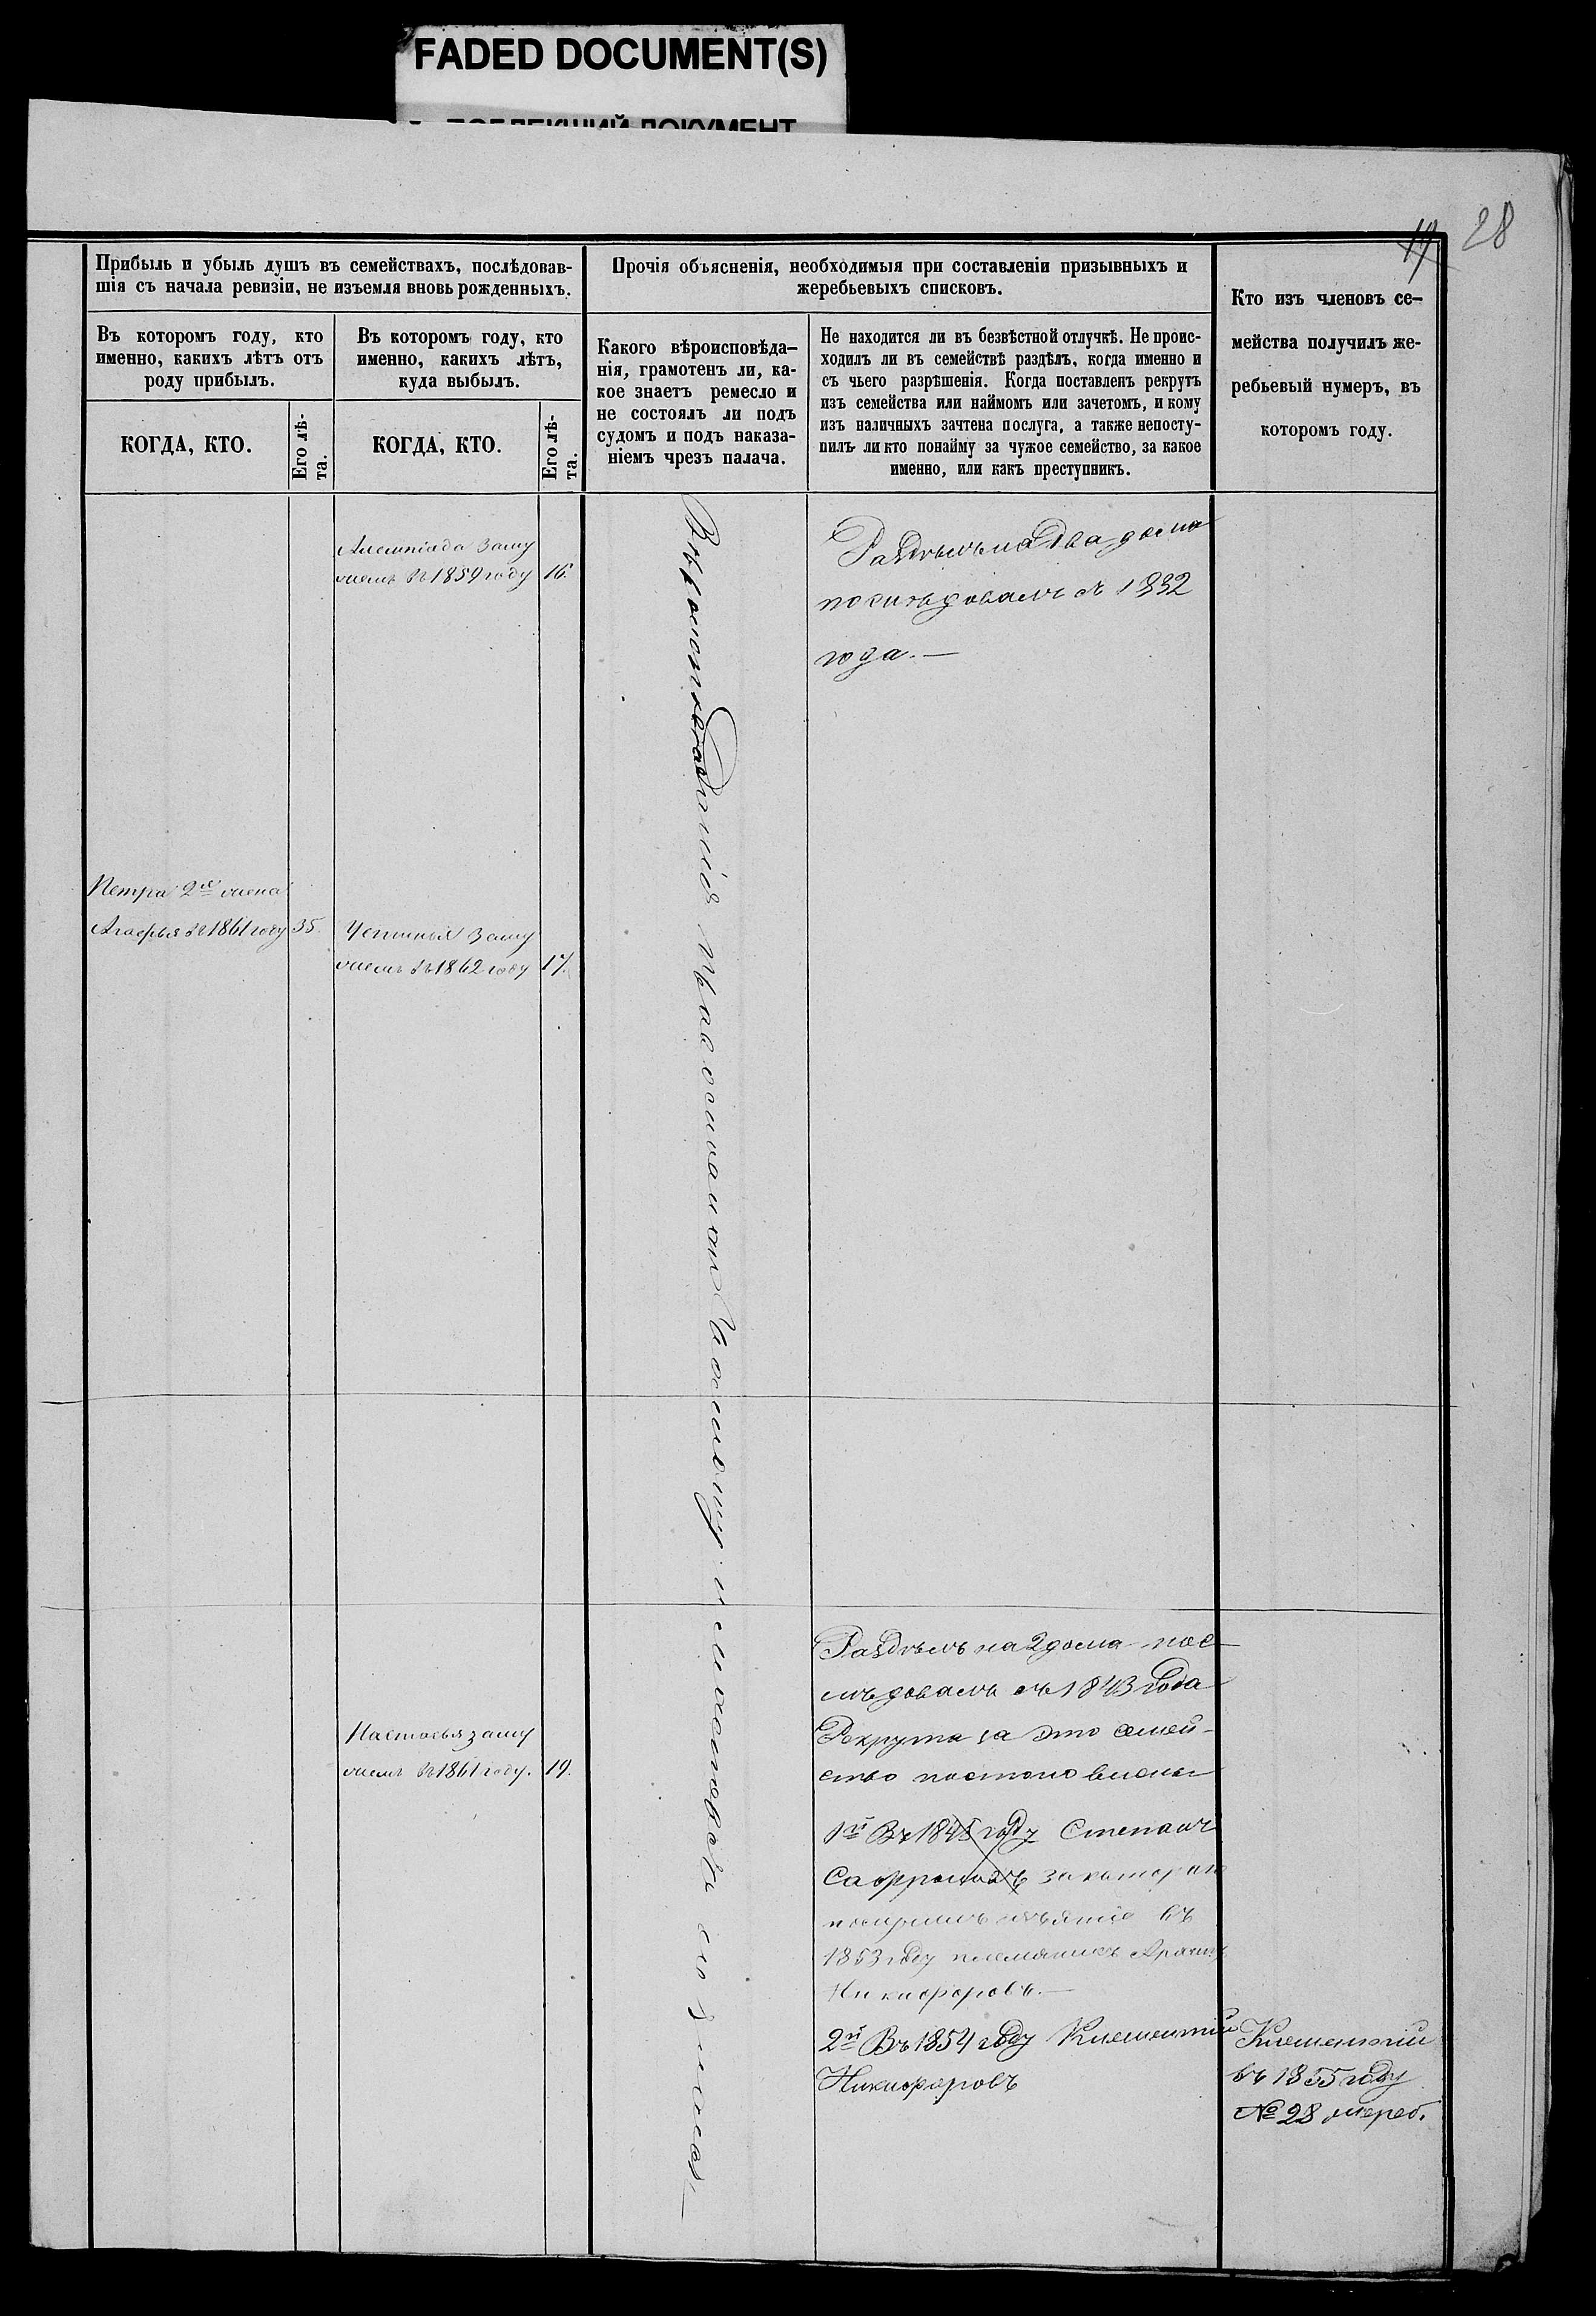 FADED DOCUMENT(S)
19 28
Прибыль и убыль душъ въ семействахъ, послѣдовав-
шія съ начала ревизіи, не изъемля вновь рожденныхъ.
Въ которомъ году, кто
именно, какихъ лѣтъ отъ
роду прибылъ.
КОГДА, КТО.
Его лѣ-
та.
Въ которомъ году, кто
именно, какихъ лѣтъ,
куда выбылъ.
КОГДА, КТО.
Его лѣ-
та.
Прочія объясненія, необходимыя при составленіи призывныхъ и
жеребьевыхъ списковъ.
Какого вѣроисповѣда-
нія, грамотенъ ли, ка-
кое знаетъ ремесло и
не состоялъ ли подъ
судомъ и подъ наказа-
ніемъ чрезъ палача.
Не находится ли въ безвѣстной отлучкѣ. Не проис-
ходилъ ли въ семействѣ раздѣлъ, когда именно и
съ чьего разрѣшенія. Когда поставленъ рекрутъ
изъ семейства или наймомъ или зачетомъ, и кому
изъ наличныхъ зачтена послуга, а также непосту-
пилъ ли кто понайму за чужое семейство, за какое
именно, или какъ преступникъ.
Кто изъ членовъ се-
мейства получилъ же-
ребьевый нумеръ, въ
которомъ году.
Петра 2я жена
Агафья въ 1861 году 35.
Алемпіада заму
жемъ въ 1859 году 16.
Устинья заму
жемъ въ 1862 году 17.
Настасья заму
жемъ въ 1861 году. 19.
Вѣроисповѣданія православнаго
Раздѣлъ на два дома
послѣдовалъ съ 1832
года.—
Раздѣлъ на 2 дома пос– 
лѣдовалъ съ 1843 года
Рекрута за это семей-
ство
1й Въ 1845 году Степанъ
Сафроновъ за котораго
въ
1853 году племяникъ
Никифоровъ.—
2й Въ 1854 году Клементій
Никифоровъ
Клементій
въ 1855 году
№ 28 жереб.